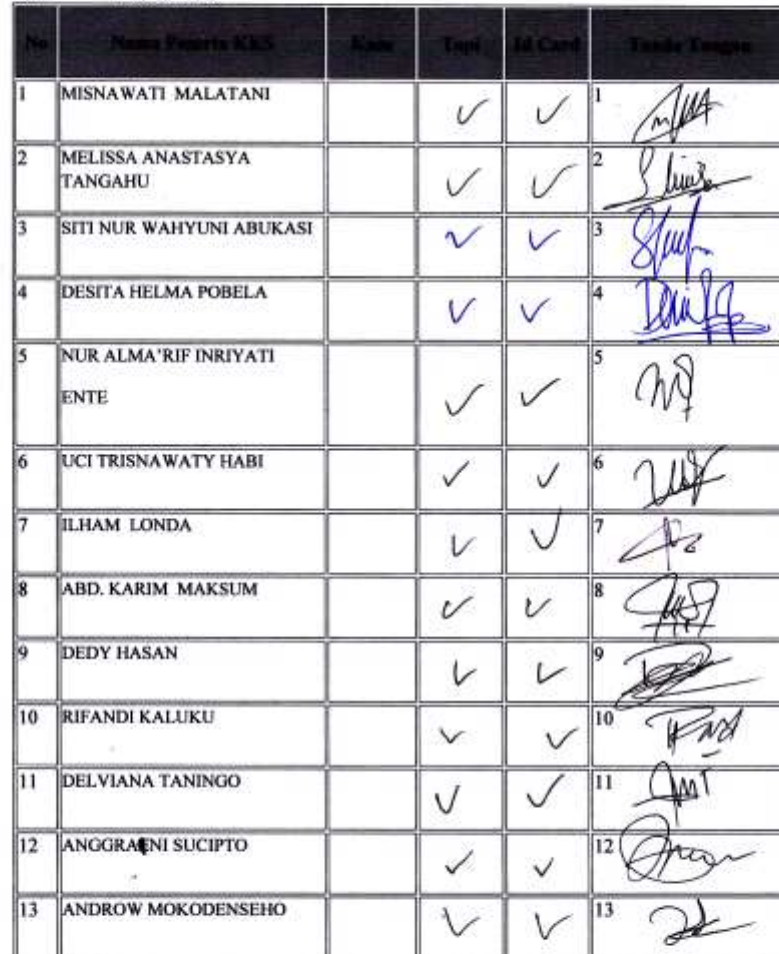 No Nama Peserta KKS Kaos Topi Id Card Tanda Tangan
1 MISNAWATI MALATANI 1
2 MELISSA ANASTASYA 2
TANGAHU
3 SITI NUR WAHYUNI ABUKASI 3
4 DESITA HELMA POBELA 4
5 NUR ALMA'RIF INRIYATI 5
ENTE
6 UCI TRISNAWATY HABI 6
7 ILHAM LONDA 7
8 ABD. KARIM MAKSUM 8
9 DEDY HASAN 9
10 RIFANDI KALUKU 10
11 DELVIANA TANINGO 11
12 ANGGRAENI SUCIPTO 12
13 ANDROW MOKODENSEHO 13